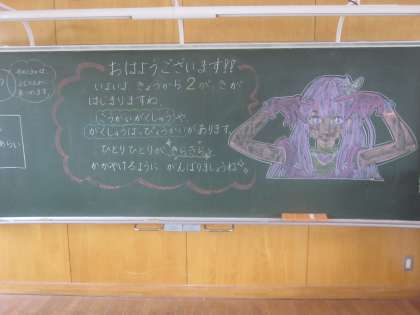 おはようございます!!
いよいよ きょうから 2がっきが
はじまりますね。
こうがいがくしゅうや、
がくしゅうはっぴょうかいがあります。
ひとりひとりが きらきら
かがやけるように がんばりましょうね